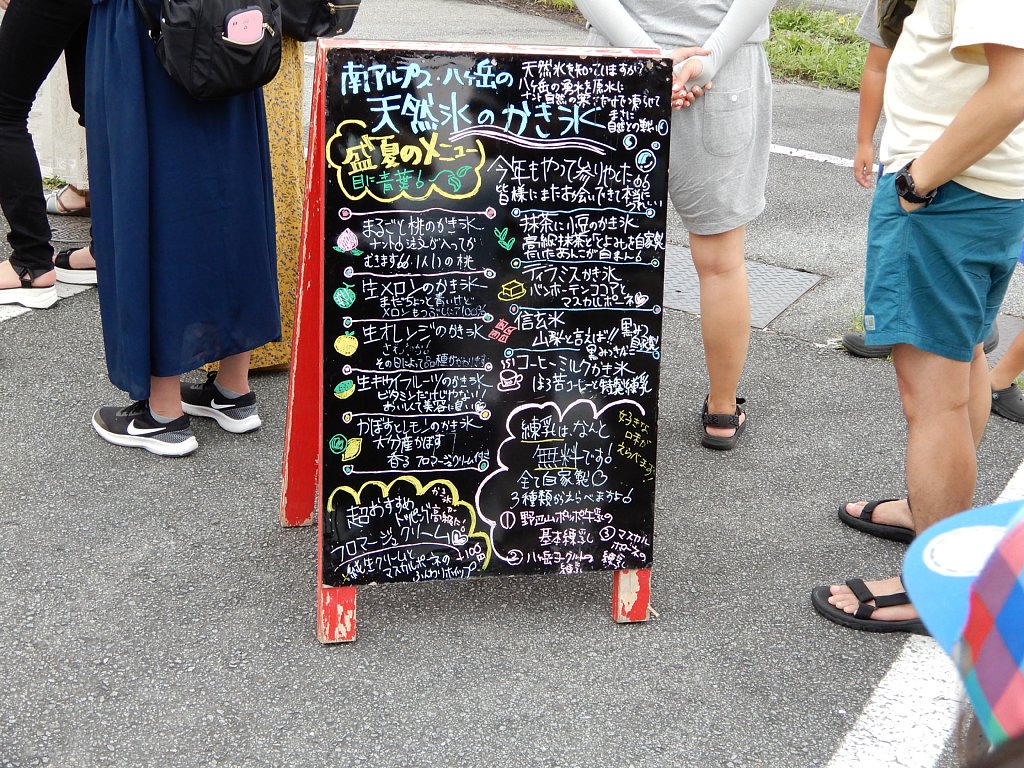 南アルプス・八ヶ岳の
天然氷のかき氷
天然氷を知っていますか?
八ヶ岳の湧水を原水に
まさに
自然との戦い
盛夏のメニュー
目に青葉
今年もやって参りやした
皆様にまたお会いできて本当に
うれしい
まるごと桃のかき氷
ナント! 注文が入ってか
むきます 1人1コの桃
生メロンのかき氷
まだちょっと青いけど
生オレンジのかき氷
生キウイフルーツのかき氷
ビタミンだけじゃない!
おいしくて美容に良い
かぼすとレモンのかき氷
大分産かぼす
香る フロマージュクリーム付き
抹茶に小豆のかき氷
高級抹茶と
自家製
だいたあんこが自まん
ティラミスかき氷
バンホーテンココアと
マスカルポーネ
信玄氷
山梨と言えば!!
黒みつ
自家製
コーヒーミルクかき氷
ほろ苦コーヒーと特製練乳
練乳は、なんと
無料です!
全て自家製
3種類からえらべますよ
好きな
味が
えらべます
① 野辺山ポッポ牛乳の
基本練乳
② 八ヶ岳ヨーグルトの
練乳
③ マスカル
ポーネの
練乳
超おすすめ
かき氷
トッピング高級に!
フロマージュクリーム
+100
純生クリームと
マスカルポーネの
ふんわりホイップ